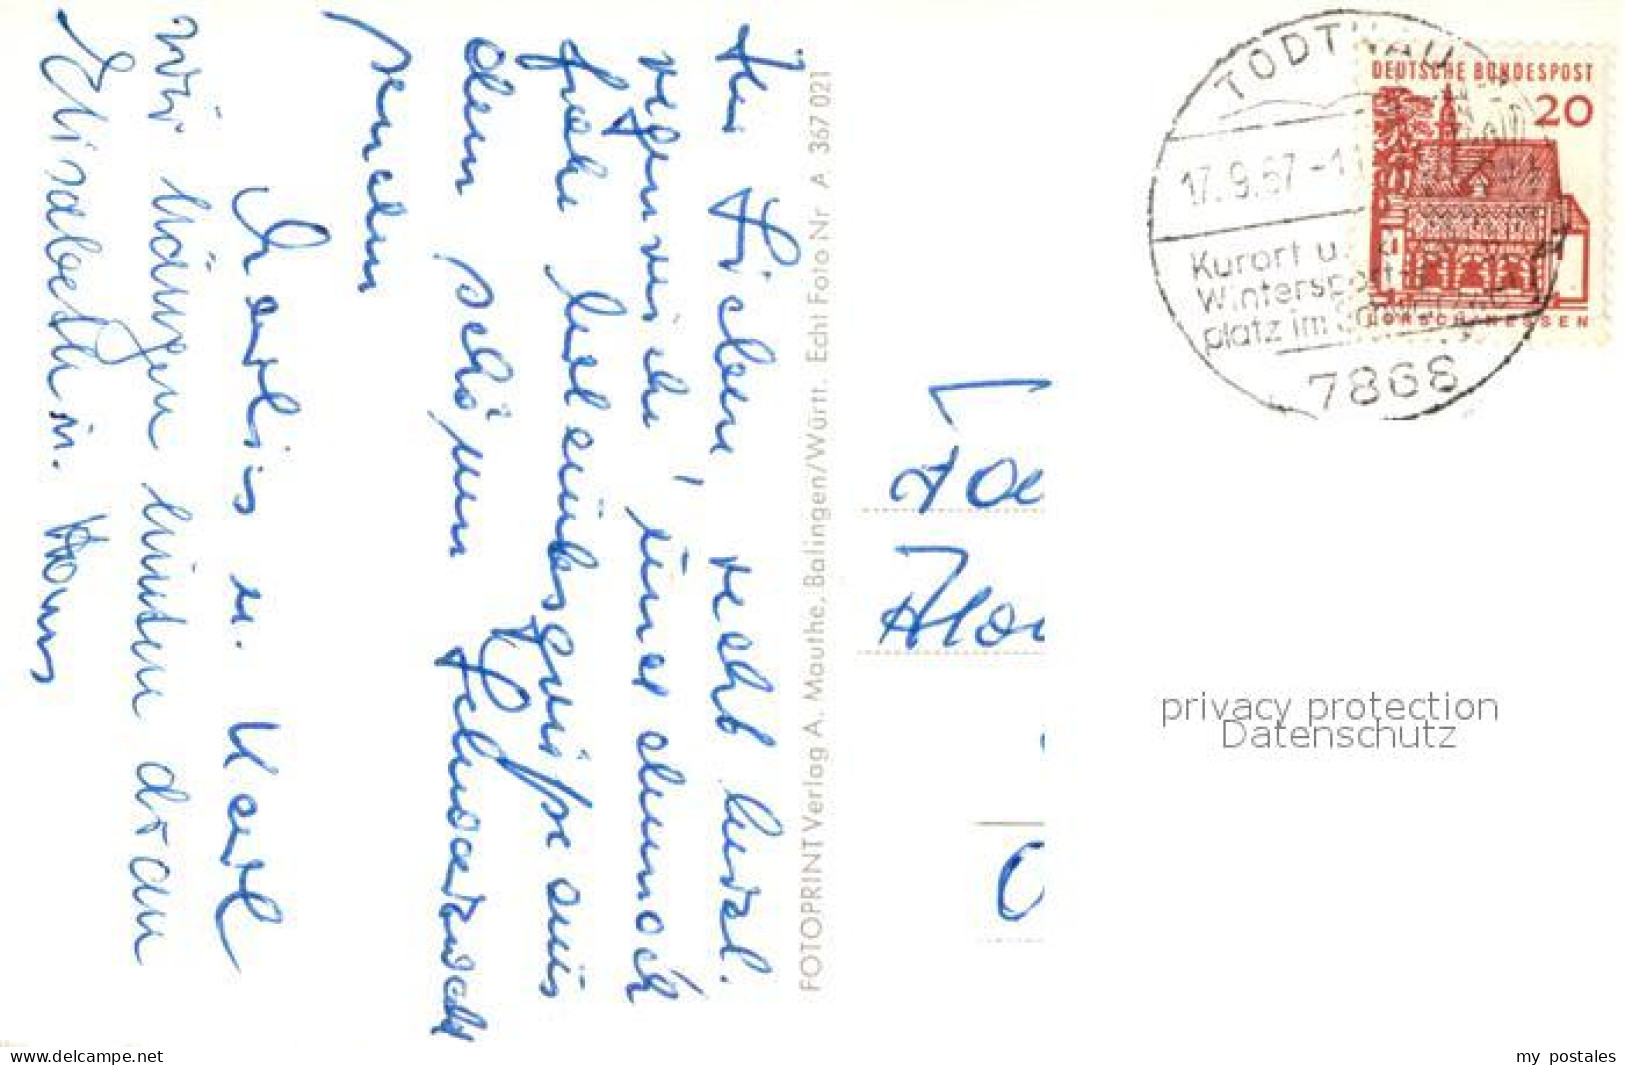 Ihr Lieben, recht herzl.
regenreiche, und dennoch
frohe Urlaubsgrüße aus
dem schönen Schwarzwald
senden
Charlis u. Karl
wir hängen hinten dran
Elisabeth u. Hans
FOTOPRINT Verlag A. Mauthe, Balingen/Württ. Echt Foto Nr A 367 021
TODTNAU
17.9.67-11
Kurort u.
Wintersport-
platz im
7868
DEUTSCHE BUNDESPOST
20
LORSCH/HESSEN
privacy protection
Datenschutz
www.delcampe.net
my_postales